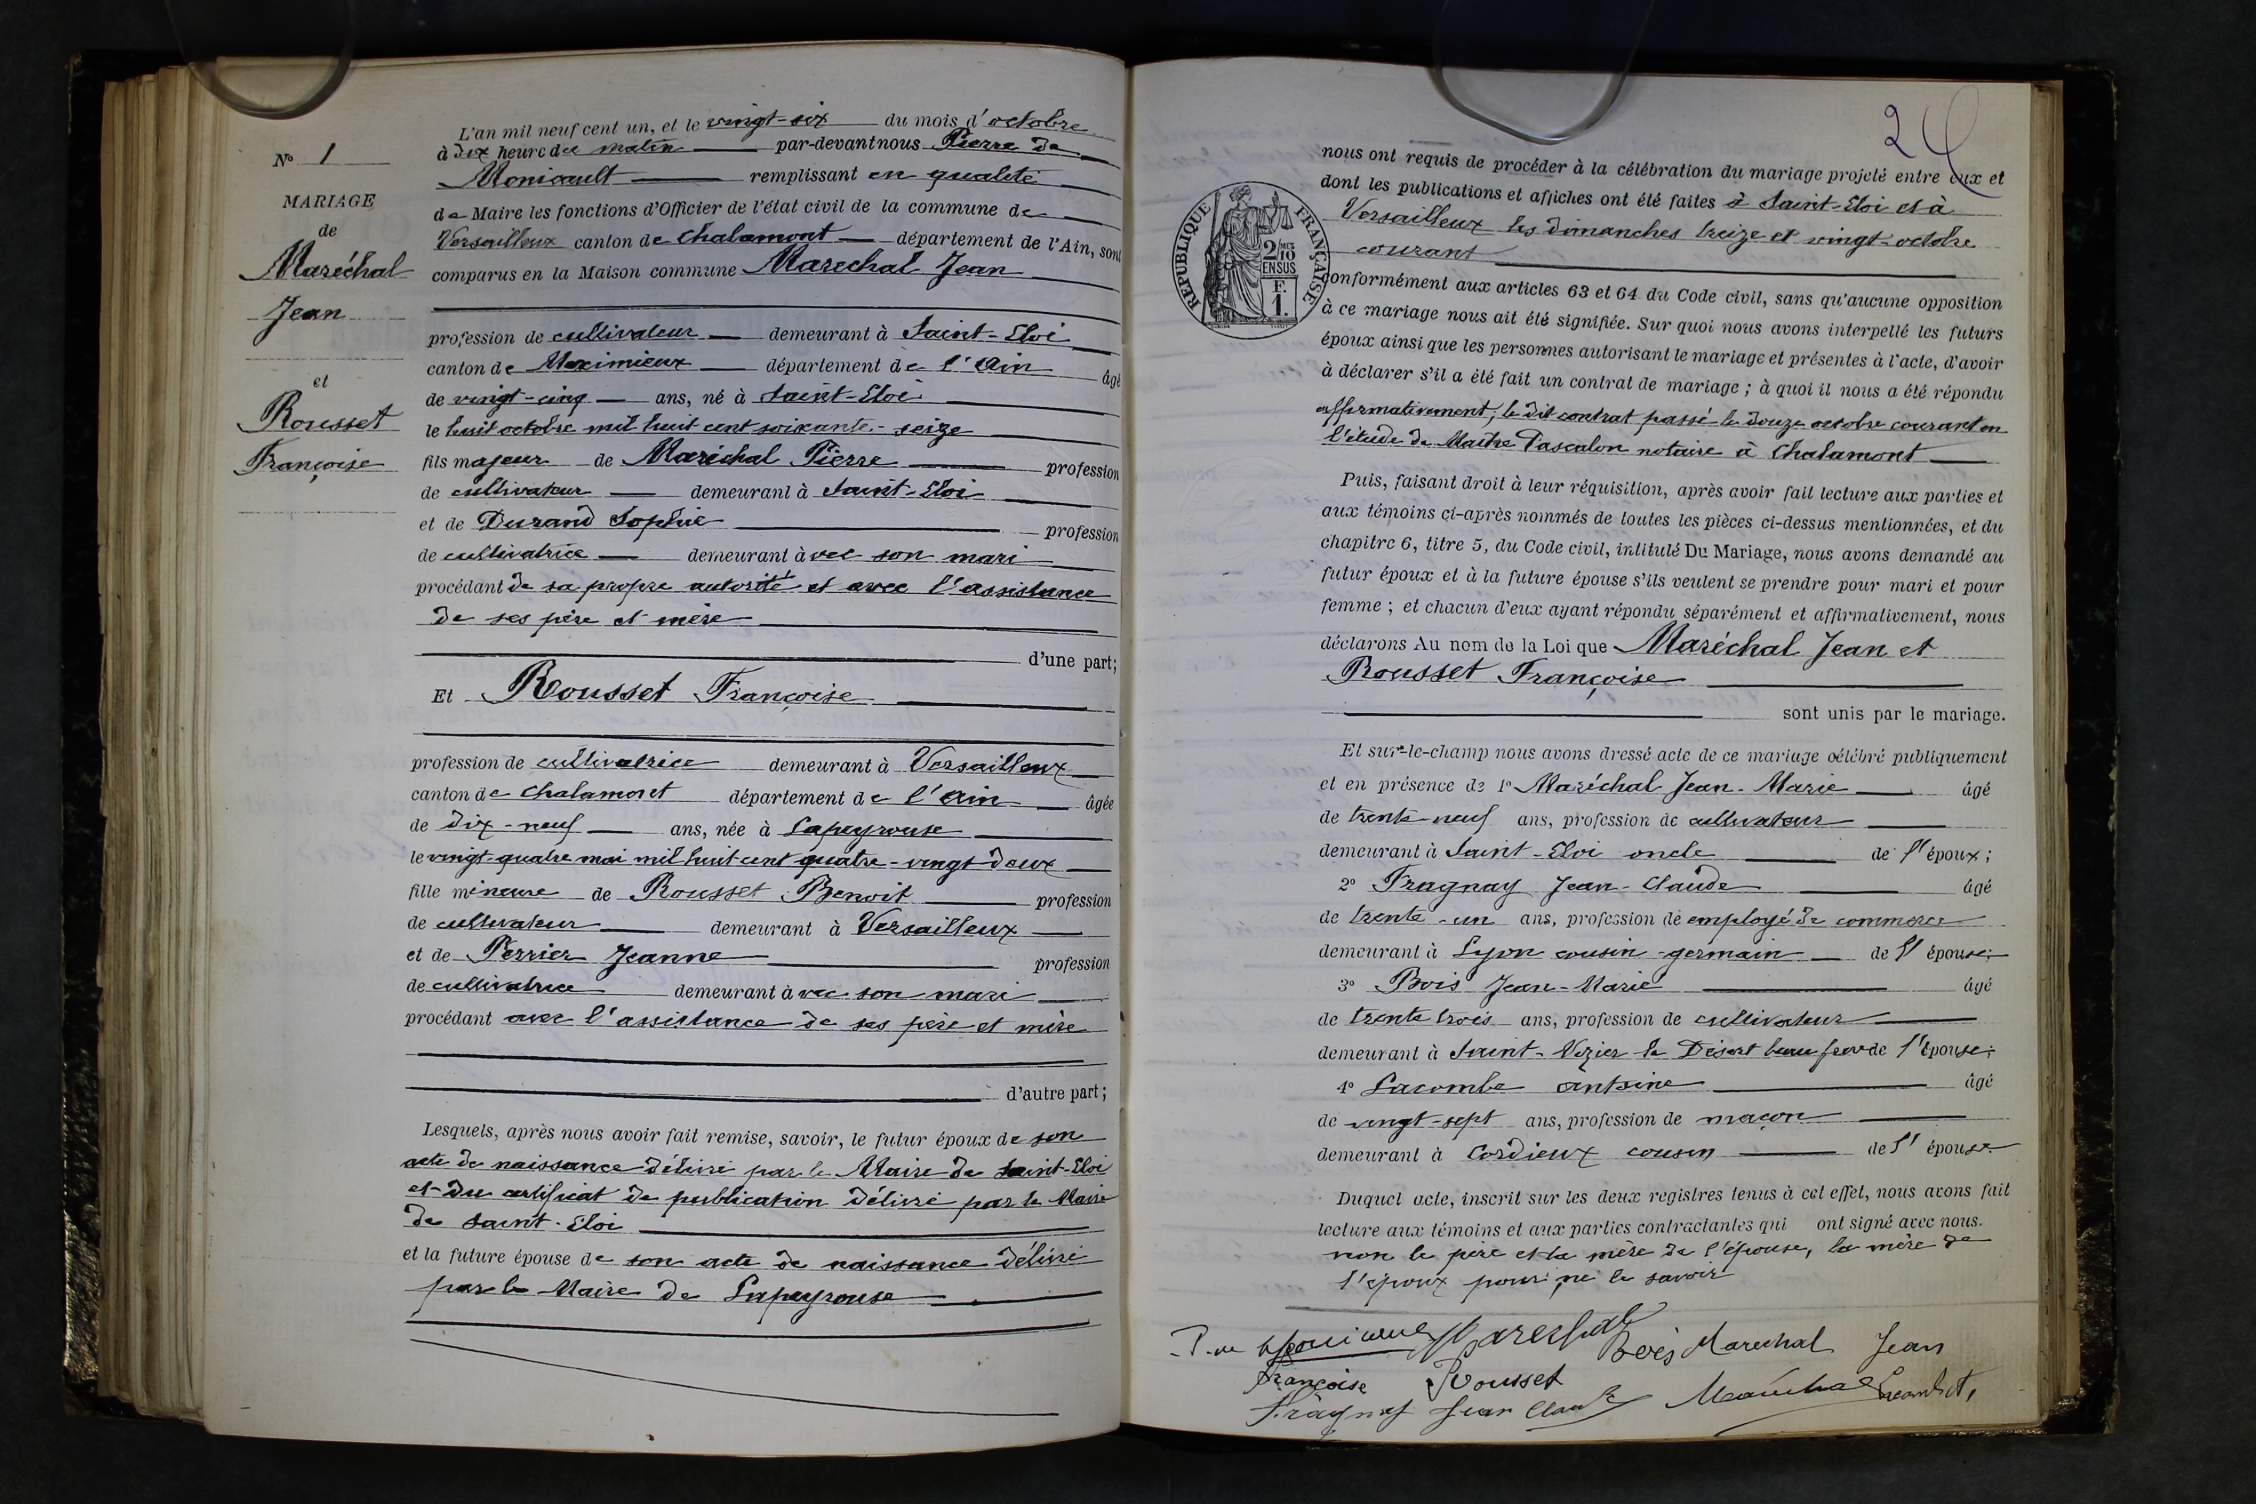 N° 1
MARIAGE
de
Maréchal
Jean
et
Rousset
Françoise
L'an mil neuf cent un, et le vingt-six du mois d'octobre
à dix heure du matin par-devant nous Pierre de
Monicault remplissant en qualité
de Maire les fonctions d'Officier de l'état civil de la commune de
Versailleux canton de Chalamont département de l'Ain, sont
comparus en la Maison commune Marechal Jean
profession de cultivateur demeurant à Saint-Eloi
canton de Meximieux département de l'Ain âgé
de vingt-cinq ans, né à Saint-Eloi
le huit octobre mil huit cent soixante-seize
fils majeur de Maréchal Pierre profession
de cultivateur demeurant à Saint-Eloi
et de Durand Sophie profession
de cultivatrice demeurant avec son mari
procédant de sa propre autorité et avec l'assistance
de ses père et mère
d'une part;
Et Rousset Françoise
profession de cultivatrice demeurant à Versailleux
canton de Chalamont département de l'Ain âgée
de dix-neuf ans, née à Lapeyrouse
le vingt-quatre mai mil huit cent quatre-vingt-deux
fille mineure de Rousset Benoit profession
de cultivateur demeurant à Versailleux
et de Perrier Jeanne profession
de cultivatrice demeurant avec son mari
procédant avec l'assistance de ses père et mère
d'autre part;
Lesquels, après nous avoir fait remise, savoir, le futur époux de son
acte de naissance délivré par le Maire de Saint-Eloi
et du certificat de publication délivré par le Maire
de Saint-Eloi
et la future épouse de son acte de naissance délivré
par le Maire de Lapeyrouse
2
RÉPUBLIQUE FRANÇAISE
2/10 MES
EN SUS
F.
1.
nous ont requis de procéder à la célébration du mariage projeté entre eux et
dont les publications et affiches ont été faites à Saint-Eloi et à
Versailleux les dimanches treize et vingt octobre
courant
conformément aux articles 63 et 64 du Code civil, sans qu'aucune opposition
à ce mariage nous ait été signifiée. Sur quoi nous avons interpellé les futurs
époux ainsi que les personnes autorisant le mariage et présentes à l'acte, d'avoir
à déclarer s'il a été fait un contrat de mariage; à quoi il nous a été répondu
affirmativement, le dit contrat passé le douze octobre courant en
l'étude de Maître Pascalon notaire à Chalamont
Puis, faisant droit à leur réquisition, après avoir fait lecture aux parties et
aux témoins ci-après nommés de toutes les pièces ci-dessus mentionnées, et du
chapitre 6, titre 5, du Code civil, intitulé Du Mariage, nous avons demandé au
futur époux et à la future épouse s'ils veulent se prendre pour mari et pour
femme; et chacun d'eux ayant répondu séparément et affirmativement, nous
déclarons Au nom de la Loi que Maréchal Jean et
Rousset Françoise
sont unis par le mariage.
Et sur-le-champ nous avons dressé acte de ce mariage célébré publiquement
et en présence de 1° Maréchal Jean-Marie âgé
de trente-neuf ans, profession de cultivateur
demeurant à Saint-Eloi oncle de l'époux;
2° Fragnay Jean-Claude âgé
de trente-un ans, profession de employé de commerce
demeurant à Lyon cousin-germain de l'épouse;
3° Bois Jean-Marie âgé
de trente trois ans, profession de cultivateur
demeurant à Saint-Nizier le Désert beau frere de l'épouse;
4° Lacombe Antoine âgé
de vingt-sept ans, profession de maçon
demeurant à Cordieux cousin de l'épouse
Duquel acte, inscrit sur les deux registres tenus à cet effet, nous avons fait
lecture aux témoins et aux parties contractantes qui ont signé avec nous.
non le père et la mère de l'épouse, la mère de
l'époux pour ne le savoir
Marechal Bois Marechal Jean
Françoise Rousset
Fragnay Jean Claude Maréchal